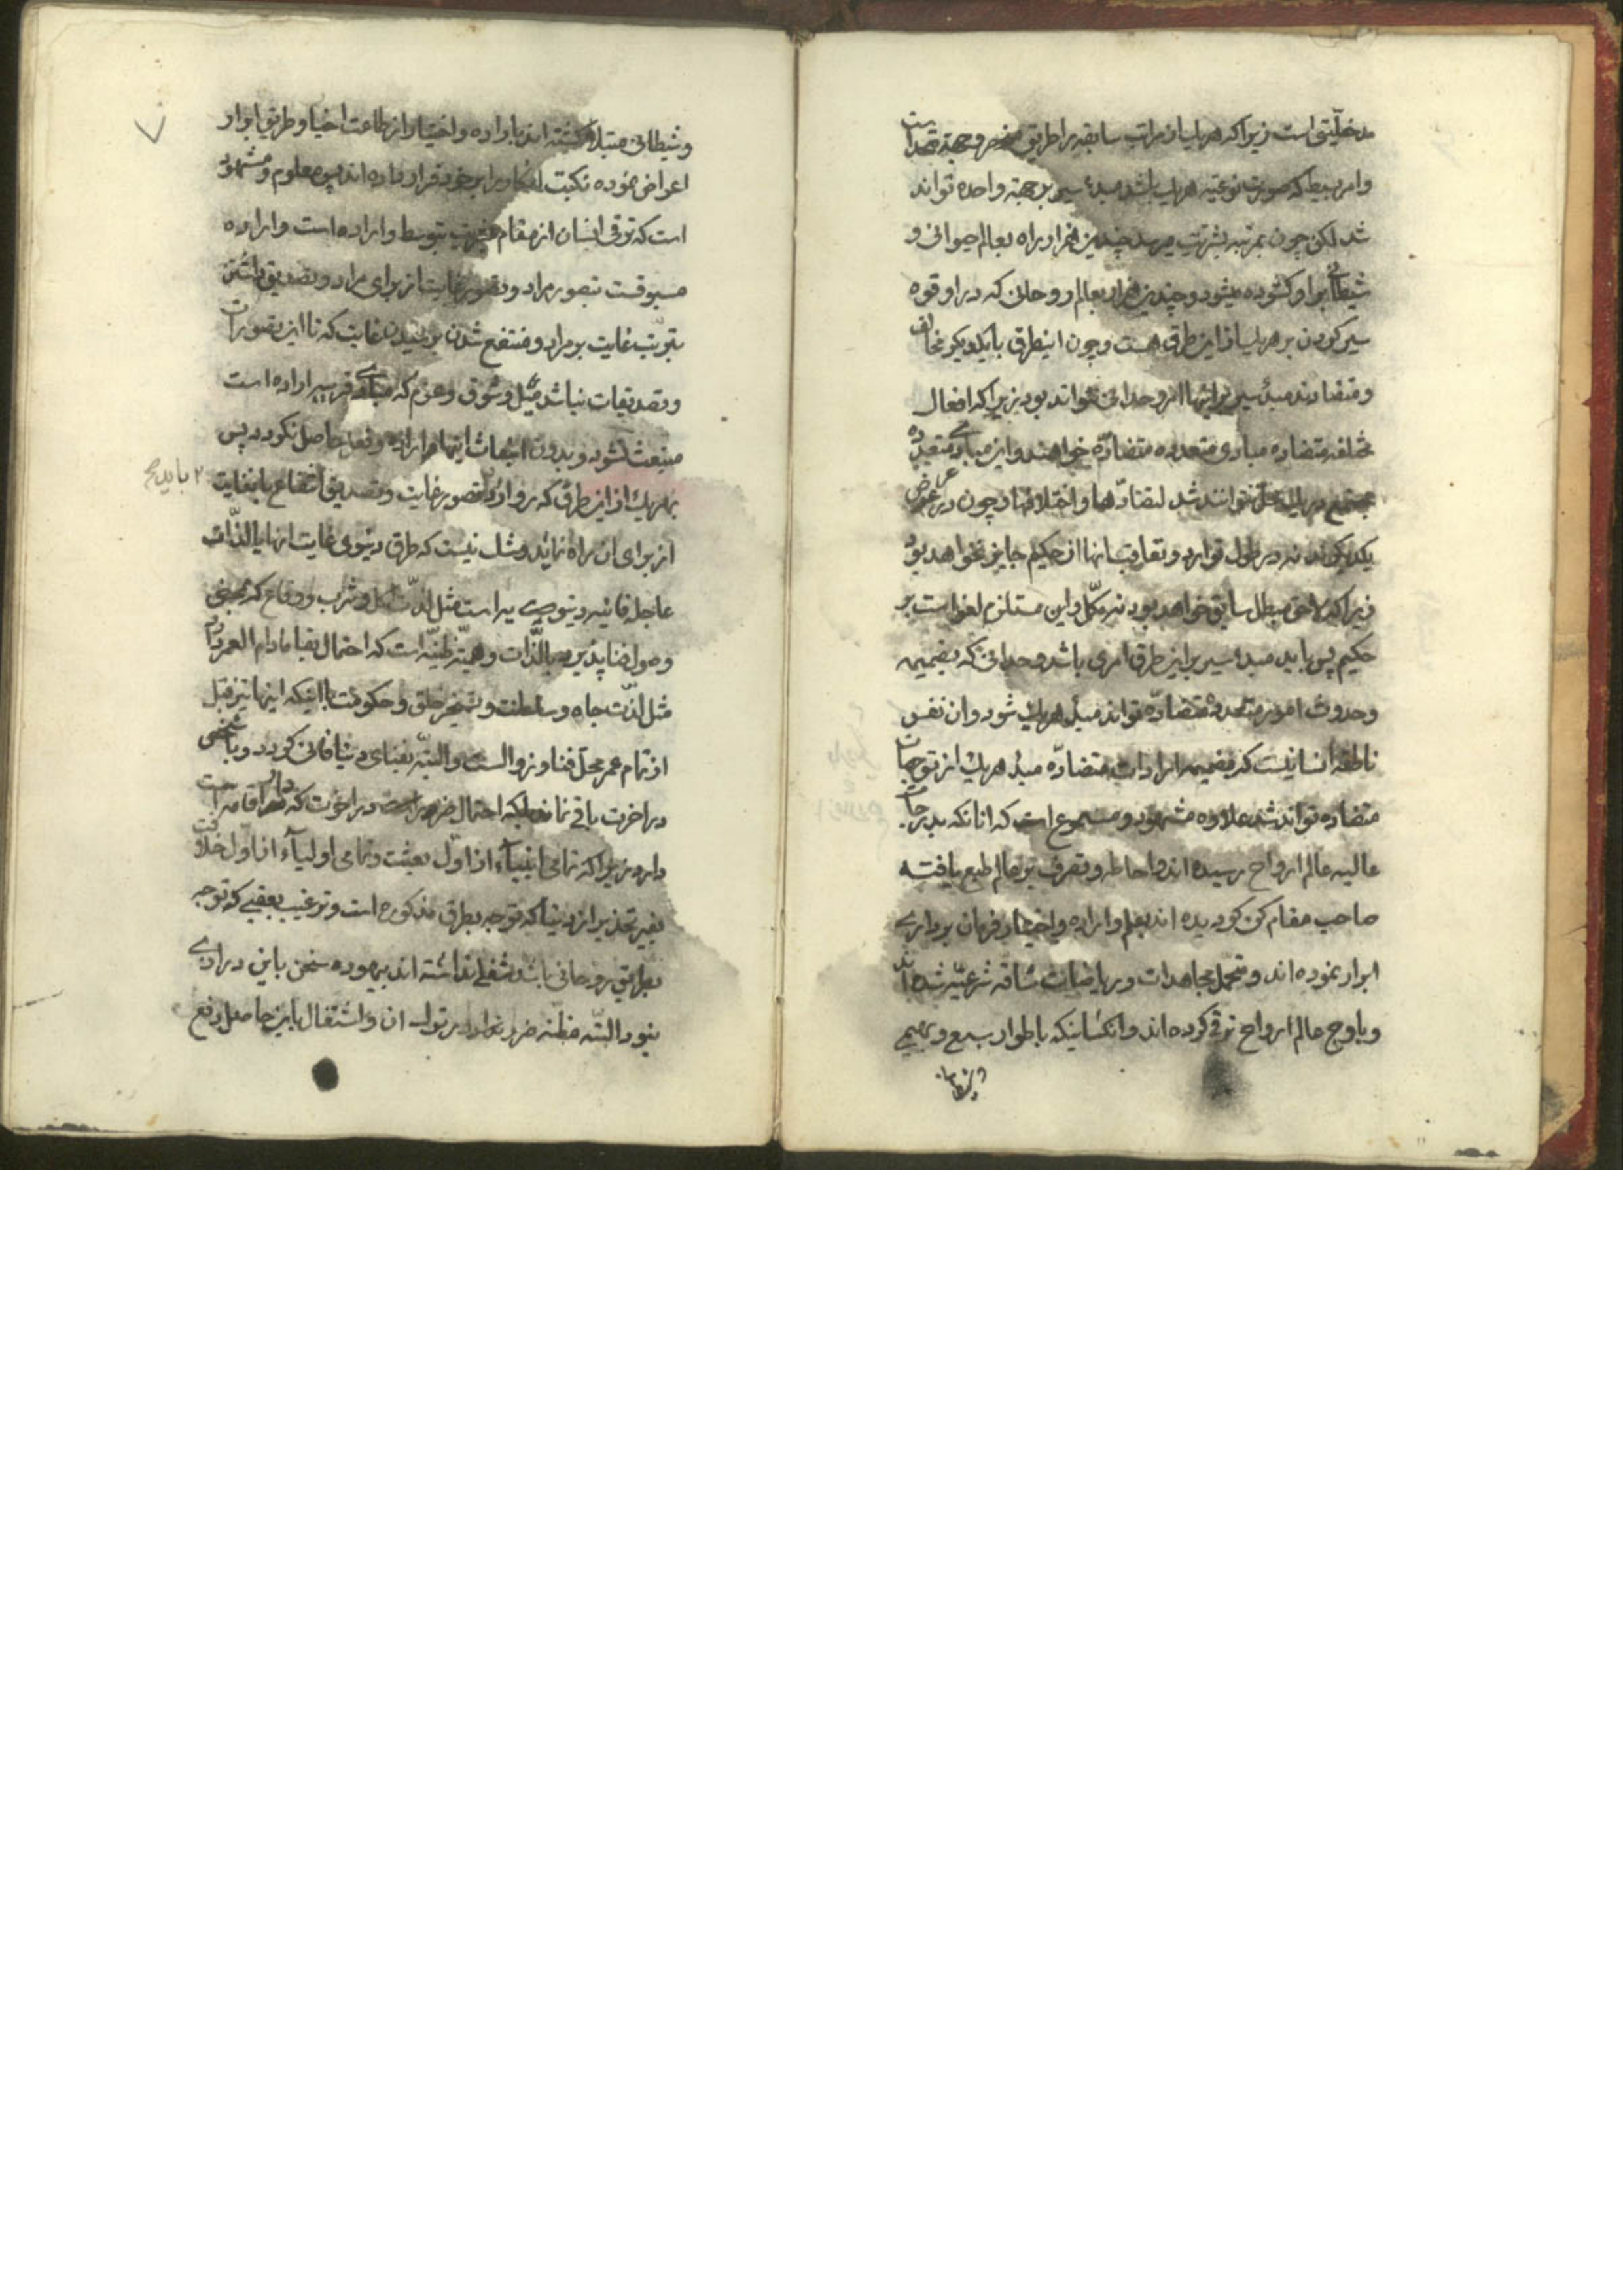 مدخلیتی است زیرا که هریک از مراتب سابقه را طریق منحصر و جهة متحد است
وامر بسیط که صورت نوعیه هریک باشد مبدء سیر بر جهة واحده تواند
شد لکن چون بمرتبه بشریت میرسد چندین هزار راه بعالم حیوانی و
شیطانی بر او کشوده میشود و چندین هزار بعالم روحانی که در او قوه
سیر کردن بر هریک از این طرق هست و چون اینطرق با یکدیکر مخالف
و متضادند مبدء سیر بر اینها امر وحدانی نتواند بود زیرا که افعال
مختلفه متضاده مبادی متعدده متضادّه خواهند و این مبادی متعدده
مجتمع در یک محل نتوانند شد لتضادّها و اختلافها و چون در عرض
یکدیکرند نه در طول توارد و تعاقب انها از حکیم جایز نخواهد بود
زیرا که لاحق مبطل سابق خواهد بود نه مکمّل و این مستلزم لغو است بر
حکیم پس باید مبدء سیر بر این طرق امری باشد وحدانی که بضمیمه
وحدوث امور متعدده متضادّه تواند مبدء هریک شود و ان نفس
ناطقه انسانیست که بضمیمه ارادات متضادّه مبدء هریک از توجهات
متضاده تواند شد علاوه مشهود و مسموع است که انانکه بدرجات
عالیه عالم ارواح رسیده اند و احاطه و تصرف بر عالم طبع یافته
صاحب مقام کن کردیده اند بعلم و اراده و اختیار فرمان برداری
ابرار نموده اند و متحمل مجاهدات و ریاضات شاقه شرعیّه شده اند
و باوج عالم ارواح ترقی کرده اند و انکسانیکه باطوار سبع و بهیمی
و شیطانی مبتلا کشته اند باراده و اختیار از طاعت اخیار و طریق ابرار
اعراض نموده نکبت انکار را بر خود قرار داده اند پس معلوم و مشهود
است که ترقی انسان از مقام بشریت بتوسط اراده است و اراده
مسبوقست بتصور مراد و تصور غایت از برای مراد و تصدیق داشتن
بترتّب غایت بر مراد و منتفع شدن بر غایت که تا این تصورات
و تصدیقات نباشد میل و شوق و عزم که مبادی قریبه اراده است
منبعث نشود و بدون انبعاث اینها اراده و فعل حاصل نکردد پس
بهریک از این طرق که رو ارد تصور غایت و تصدیق انتفاع بانغایت
۲ باید
از برای ان راه نماید و شک نیست که طرق دنیوی غایت انها بالذّات
عاجل فانیه دنیوی است مثل لذّت اکل و شرب و وقاع که بمحض
وصول فنا پذیرد بالذّات و ظنیّه است که احتمال بقا مادام العمر دارد
مثل لذّت جاه و سلطنت و تسخیر خلق و حکومت با اینکه اینها نیز قبل
از تمام عمر محلّ فنا و زوالست و البتّه بفنای دنیا فانی کردد و با شخص
در اخرت باقی نماند بلکه احتمال ضرر در اخرت که دار اقامه است
دارد زیرا که تمامی انبیآء از اوّل بعثت و تمامی اولیآء از اوّل خلافت
بغیر تحذیر از دنیا که توجه بطرق مذکوره است و ترغیب بعقبی که توجه
بطریق روحانی باشد شغلی نداشته اند بیهوده سخن باین درازی
نبود البتّه مظنه ضرر در تولّی ان و اشتغال باین حاصل و رفع